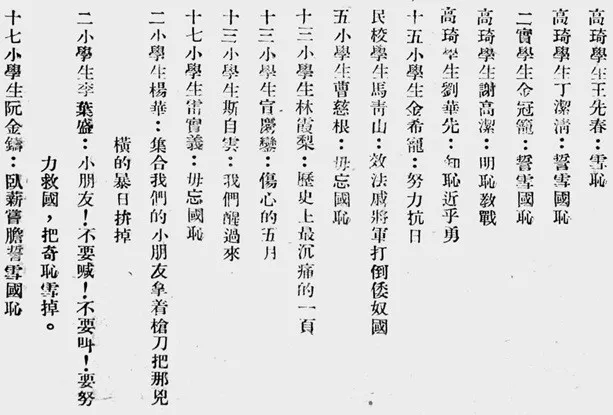 高琦學生王先春：雪恥
高琦學生丁潔淸：誓雪國恥
二實學生金冠籠：誓雪國恥
高琦學生謝高潔：明恥敎戰
高琦學生劉華先：知恥近乎勇
十五小學生金希寵：努力抗日
民校學生馬靑山：效法戚將軍打倒倭奴國
五小學生曹慈根：毋忘國恥
十三小學生林霞梨：歷史上最沉痛的一頁
十三小學生宣慶鑾：傷心的五月
十三小學生斯自雲：我們醒過來
十七小學生雷實義：毋忘國恥
二小學生楊華：集合我們的小朋友拿着槍刀把那兇
橫的暴日拚掉
二小學生李葉盛：小朋友！不要喊！不要叫！要努
力救國，把奇恥雪掉。
十七小學生阮金鑄：臥薪嘗膽誓雪國恥